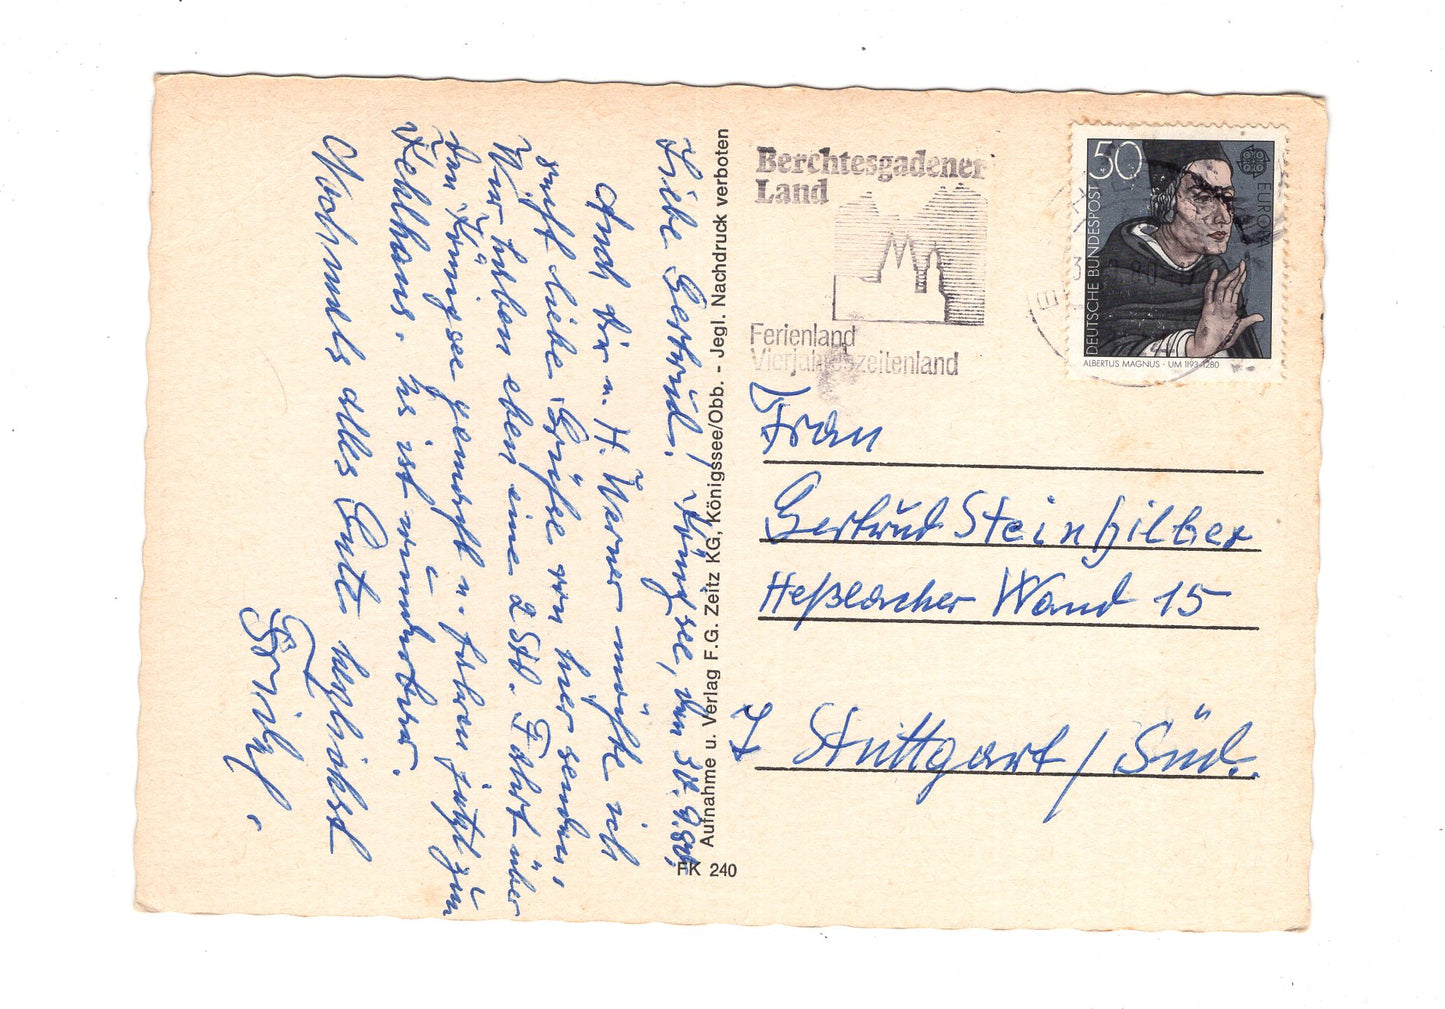 Liebe Gertrud! Königssee, den 30.9.80.
Auch dir u. H. Werner möchte ich
recht liebe Grüße von hier senden,
Wir haben eben eine 2 Std. Fahrt über
den Königssee gemacht u. fahren jetzt zum
Kehlhaus. Es ist wunderbar.
Nochmals alles Gute herzlichst
Aufnahme u. Verlag F.G. Zeitz KG, Königssee/Obb. - Jegl. Nachdruck verboten
FK 240
Berchtesgadener
Land
Ferienland
Vierjahreszeitenland
50
EUROPA
DEUTSCHE BUNDESPOST
ALBERTUS MAGNUS · UM 1193-1280
Frau
Gertrud Steinhilber
Heßlacher Wand 15
7 Stuttgart / Süd.